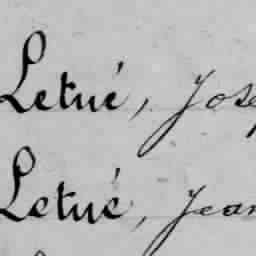 Letué, Jose
Letué, Jean